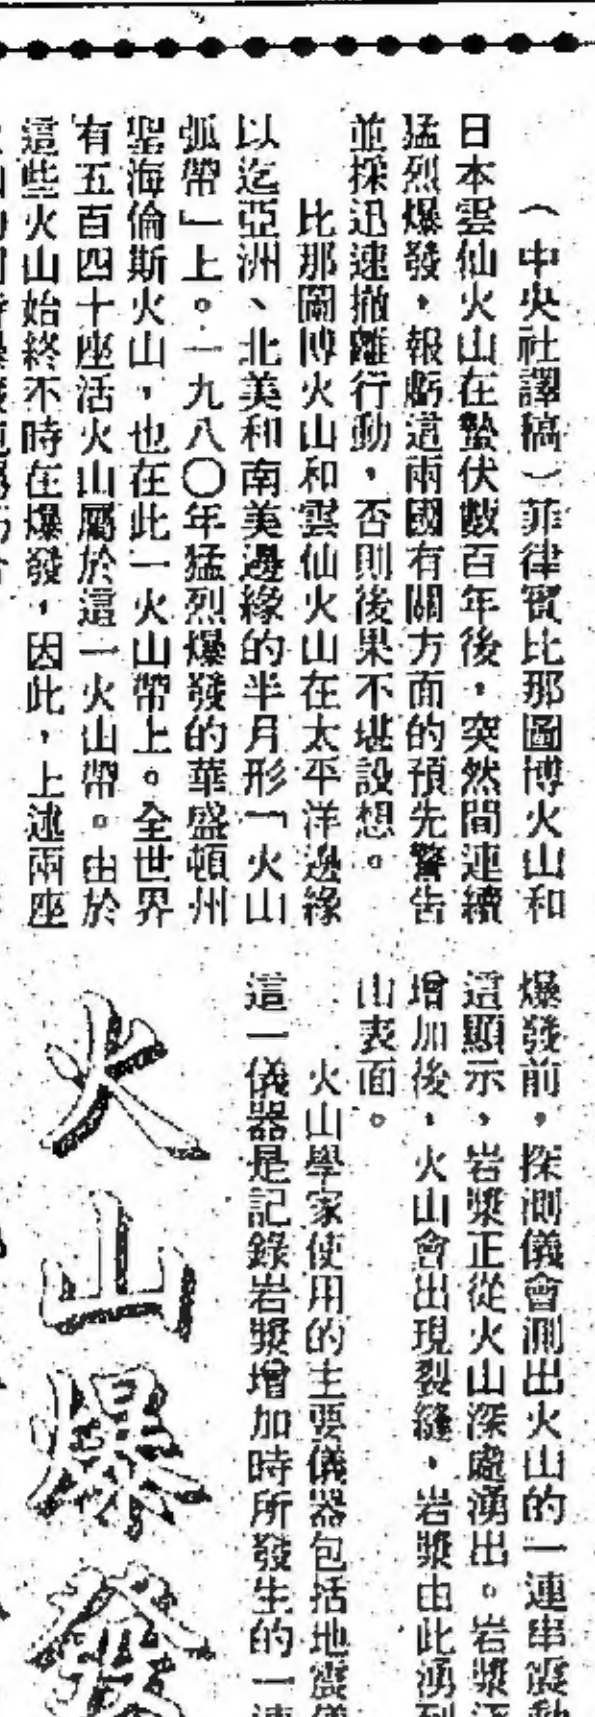 （中央社譯稿）菲律賓比那圖博火山和
日本雲仙火山在蟄伏數百年後，突然間連續
猛烈爆發，報虧這兩國有關方面的預先警告
並採迅速撤離行動，否則後果不堪設想。
比那圖博火山和雲仙火山在太平洋邊緣
以迄亞洲、北美和南美邊緣的半月形「火山
弧帶」上。一九八〇年猛烈爆發的華盛頓州
聖海倫斯火山，也在此一火山帶上。全世界
有五百四十座活火山屬於這一火山帶。由於
這些火山始終不時在爆發，因此，上述兩座
爆發前，探測儀會測出火山的一連串震動
這顯示，岩漿正從火山深處湧出。岩漿
增加後，火山會出現裂縫，岩漿由此湧到
山表面。
火山學家使用的主要儀器包括地震儀
這一儀器是記錄岩漿增加時所發生的一連
火山爆發